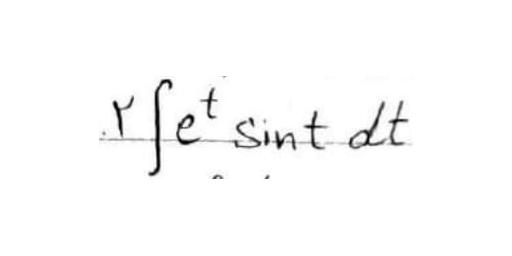 ۲ ∫ e^t sint dt